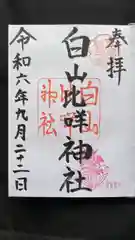 奉拝
白山比咩神社
白山
神社
令和六年九月二十二日